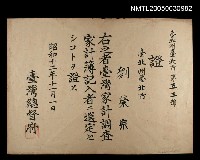 NMTL20050030982
證
臺北州臺北市
劉榮宗
右之者臺灣家計調查
家計簿記入者ニ選定セ
シコトヲ證ス
昭和十二年十一月一日
臺灣總督府